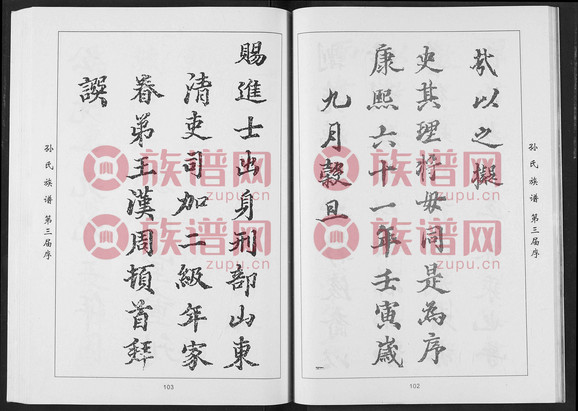 孙氏族谱 第三届序
弐以之擬
史其理将毋同是為序
康熙六十一年壬寅歲
九月穀旦
102
賜進士出身刑部山東
清吏司加二級年家
眷弟王漢周頓首拜
譔
孙氏族谱 第三届序
103
族谱网
zupu.cn
族谱网
zupu.cn
族谱网
zupu.cn
族谱网
zupu.cn
族谱网
zupu.cn
族谱网
zupu.cn